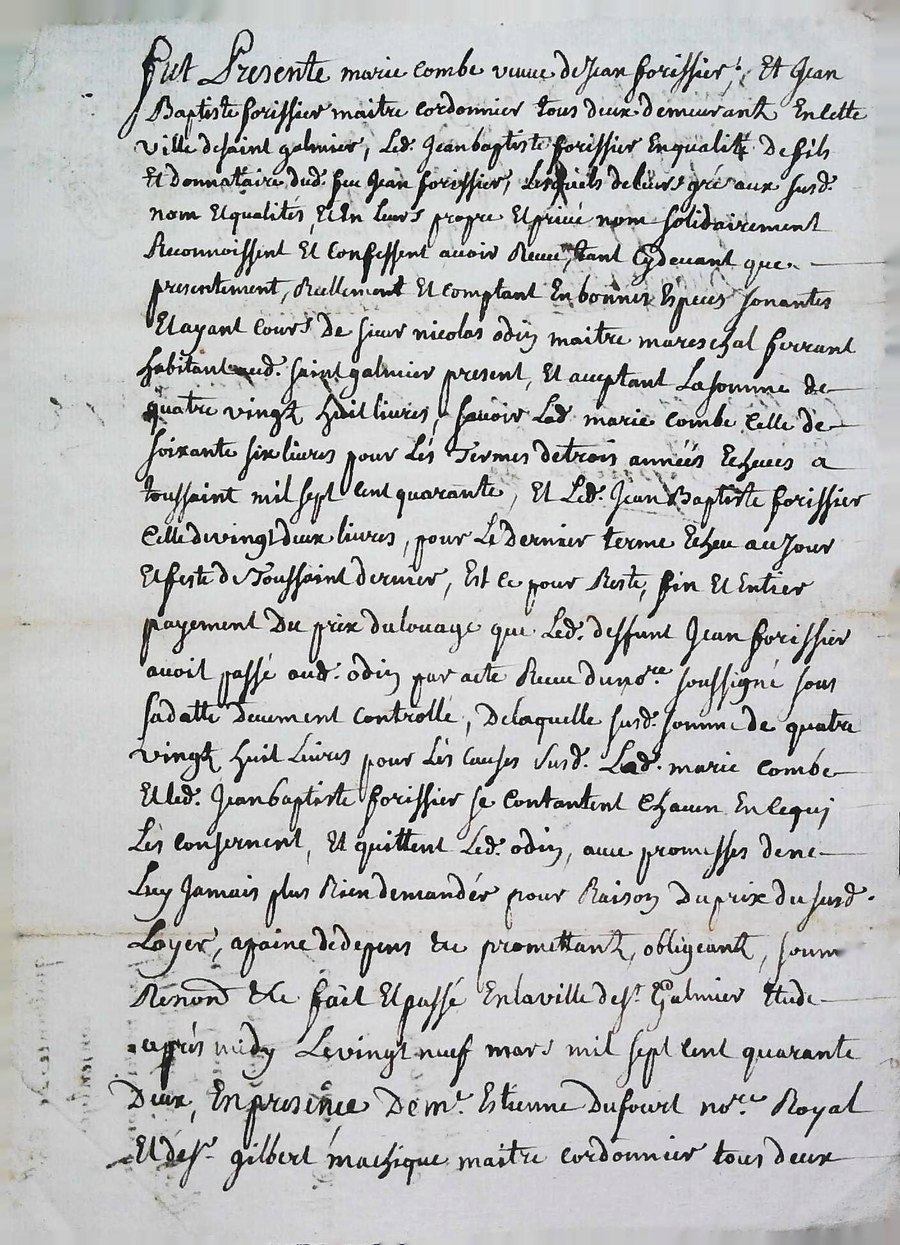 fut Presente marie combe veuve de Jean forissier, Et Jean
Baptiste forissier maitre cordonnier tous deux demeurantz En cette
ville de saint galmier, Led. Jean baptiste forissier En qualité De fils
Et Donnataire dud. feu Jean forissier, Lesquels de leurs gré aux susd.
nom Et qualités, Et En leurs propre Et privé nom solidairement
Reconnoissent Et Confessent avoir Receu, tant Cy devant que
presentement, Reellement Et comptant En bonnes Especes sonantes
Et ayant cours De sieur nicolas odin maitre mareschal ferrant
habitant aud. saint galmier present, Et aceptant La somme de
quatre vingtz huit livres, scavoir Lad. marie combe Celle de
soixante six livres pour Les Termes de trois années Echeues a
toussaint mil sept cent quarante, Et Led. Jean Baptiste forissier
Celle de vingt deux livres, pour Le Dernier terme Echeu au Jour
Et feste de Toussaint dernier, Est ce pour Reste, fin Et Entier
payement Du prix du louage que Led. deffunt Jean forissier
avoit passé aud. odin par acte Receu du no.re soussigné sous
sa datte Deuement Controllé, De laquelle susd. somme de quatre
vingtz huit Livres pour Les Causes susd. Lad. marie combe
Et led. Jean baptiste forissier se contantent Chacun En ce qui
Les consernent, Et quittent Led. odin, avec promesses de ne
Luy Jamais plus Rien demander pour Raison Du prix du susd.
Loyer, a paine de depens &c promettantz, obligeantz, soum
Renond &c fait Et passé En la ville de S.t Galmier Etude
apres midy Le vingt neuf mars mil sept cent quarante
Deux, En presence De m.e Estienne Dufourt no.re Royal
Et de s.r gilbert machique maitre cordonnier tous deux